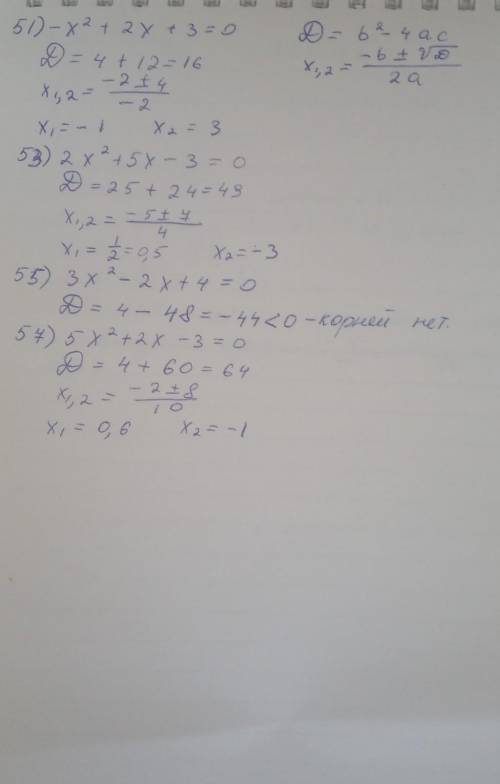 51) -x² + 2x + 3 = 0
D = b² - 4ac
D = 4 + 12 = 16
x₁,₂ = (-b ± √D)/2a
x₁,₂ = (-2 ± 4)/-2
x₁ = -1 x₂ = 3
53) 2x² + 5x - 3 = 0
D = 25 + 24 = 49
x₁,₂ = (-5 ± 7)/4
x₁ = 1/2 = 0,5 x₂ = -3
55) 3x² - 2x + 4 = 0
D = 4 - 48 = -44 < 0 - корней нет.
57) 5x² + 2x - 3 = 0
D = 4 + 60 = 64
x₁,₂ = (-2 ± 8)/10
x₁ = 0,6 x₂ = -1